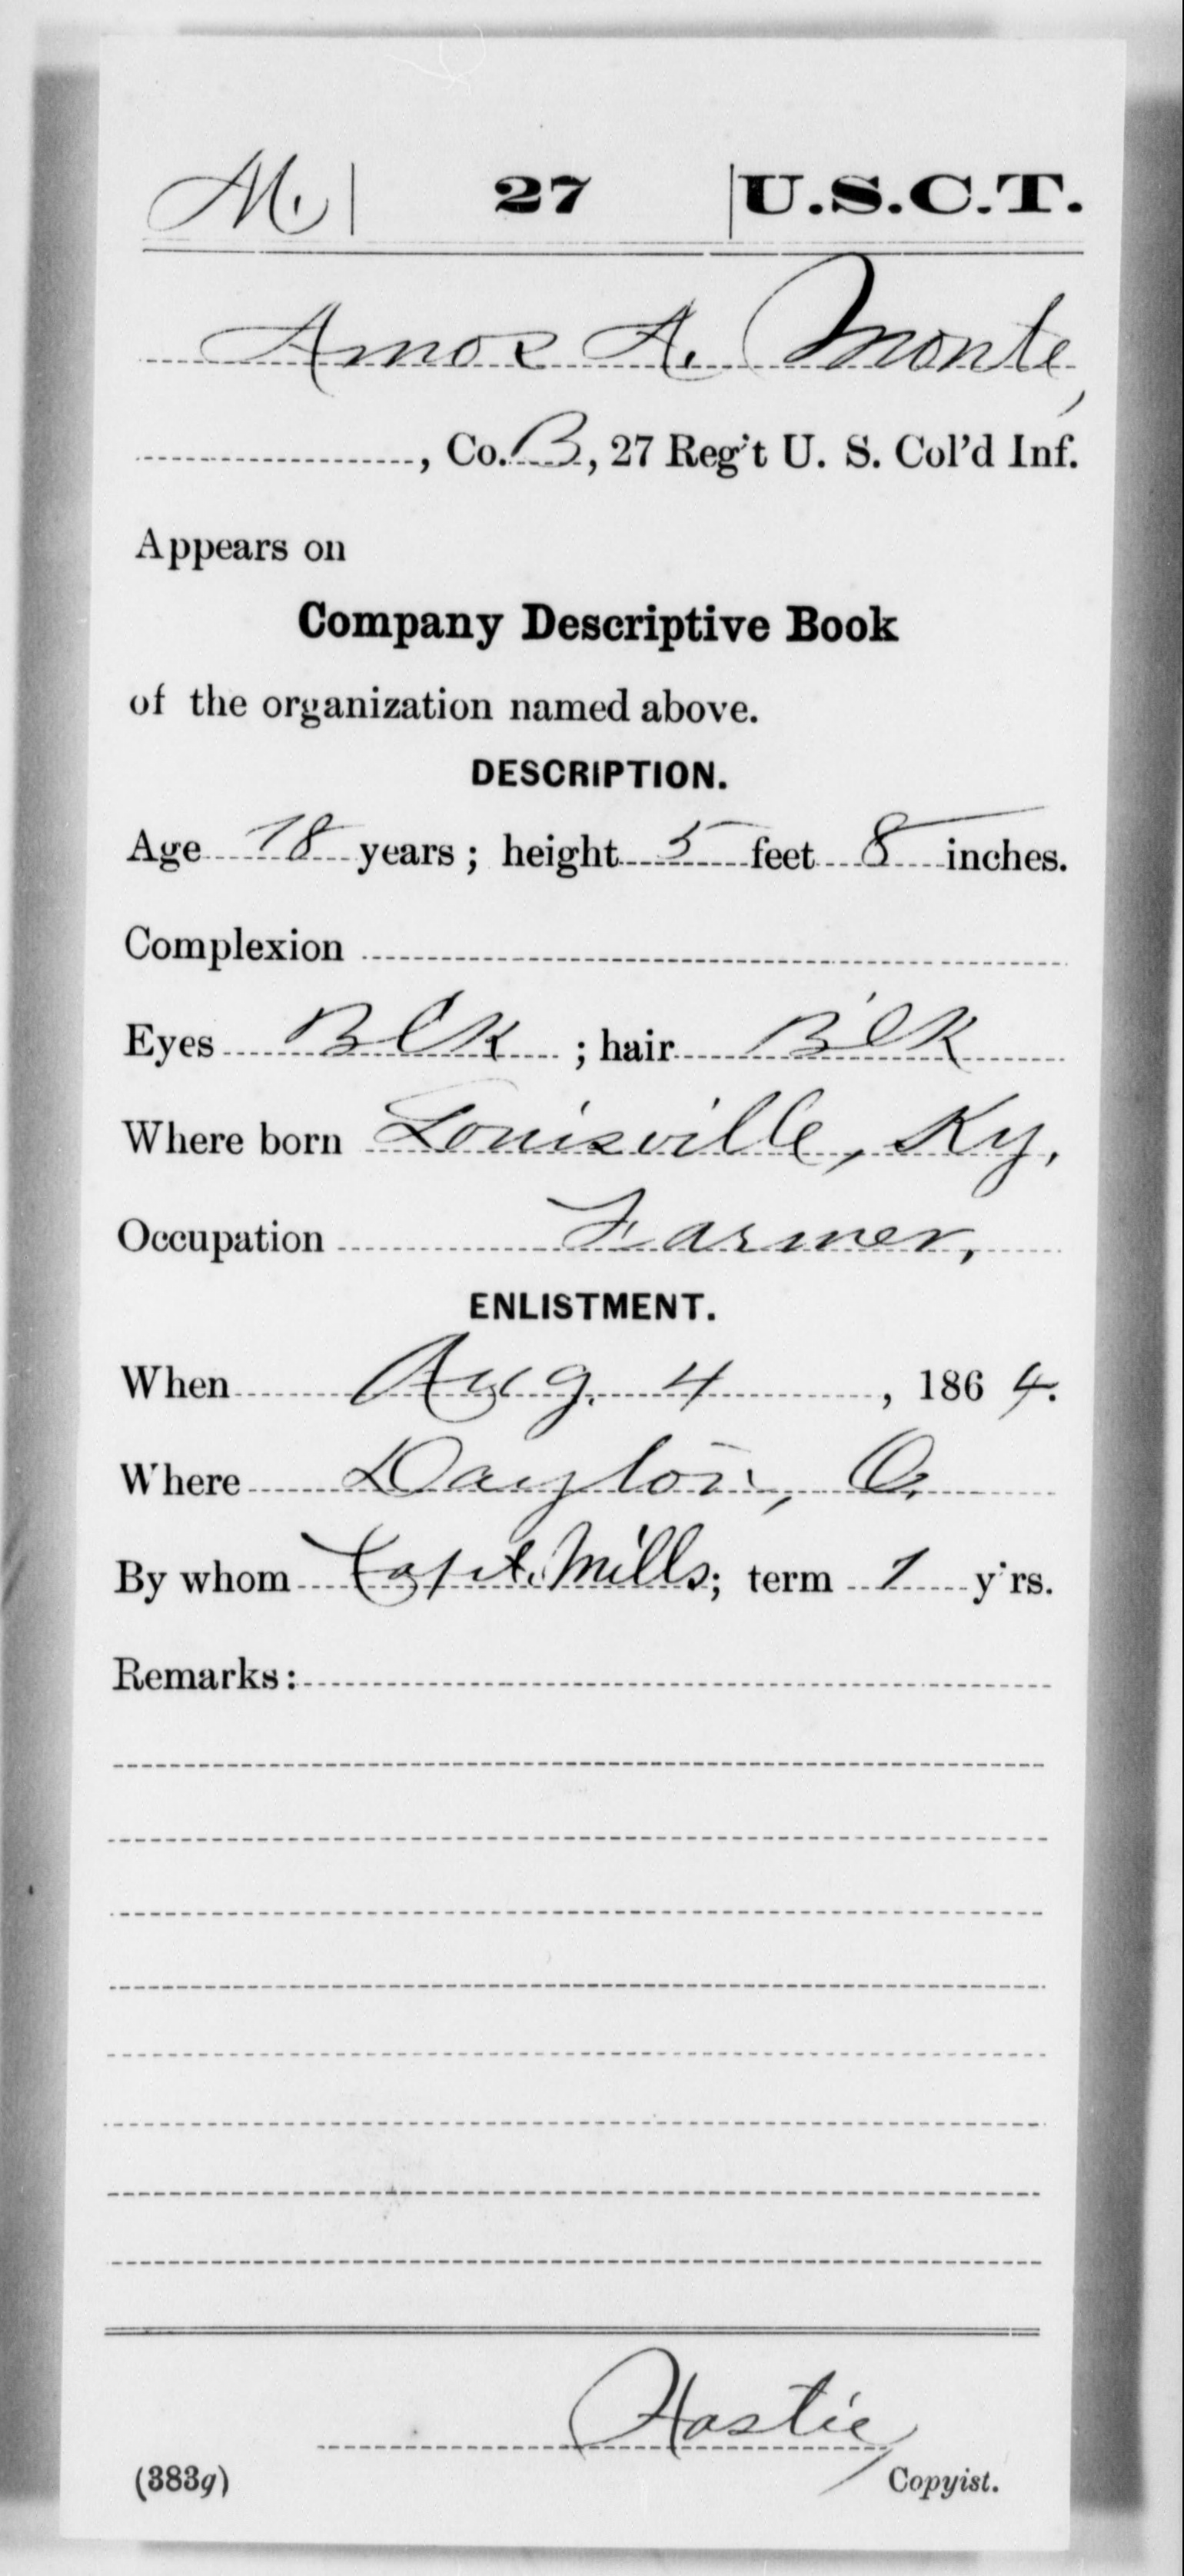 M. 27 U.S.C.T.
Amos A. Monte,
, Co. B, 27 Reg't U. S. Col'd Inf.
Appears on
Company Descriptive Book
of the organization named above.
DESCRIPTION.
Age 18 years; height 5 feet 8 inches.
Complexion
Eyes Blk; hair Blk
Where born Louisville, Ky,
Occupation Farmer,
ENLISTMENT.
When Aug. 4, 1864.
Where Dayton, O.
By whom Capt. Mills; term 1 y'rs.
Remarks:
Hastie
(383g) Copyist.